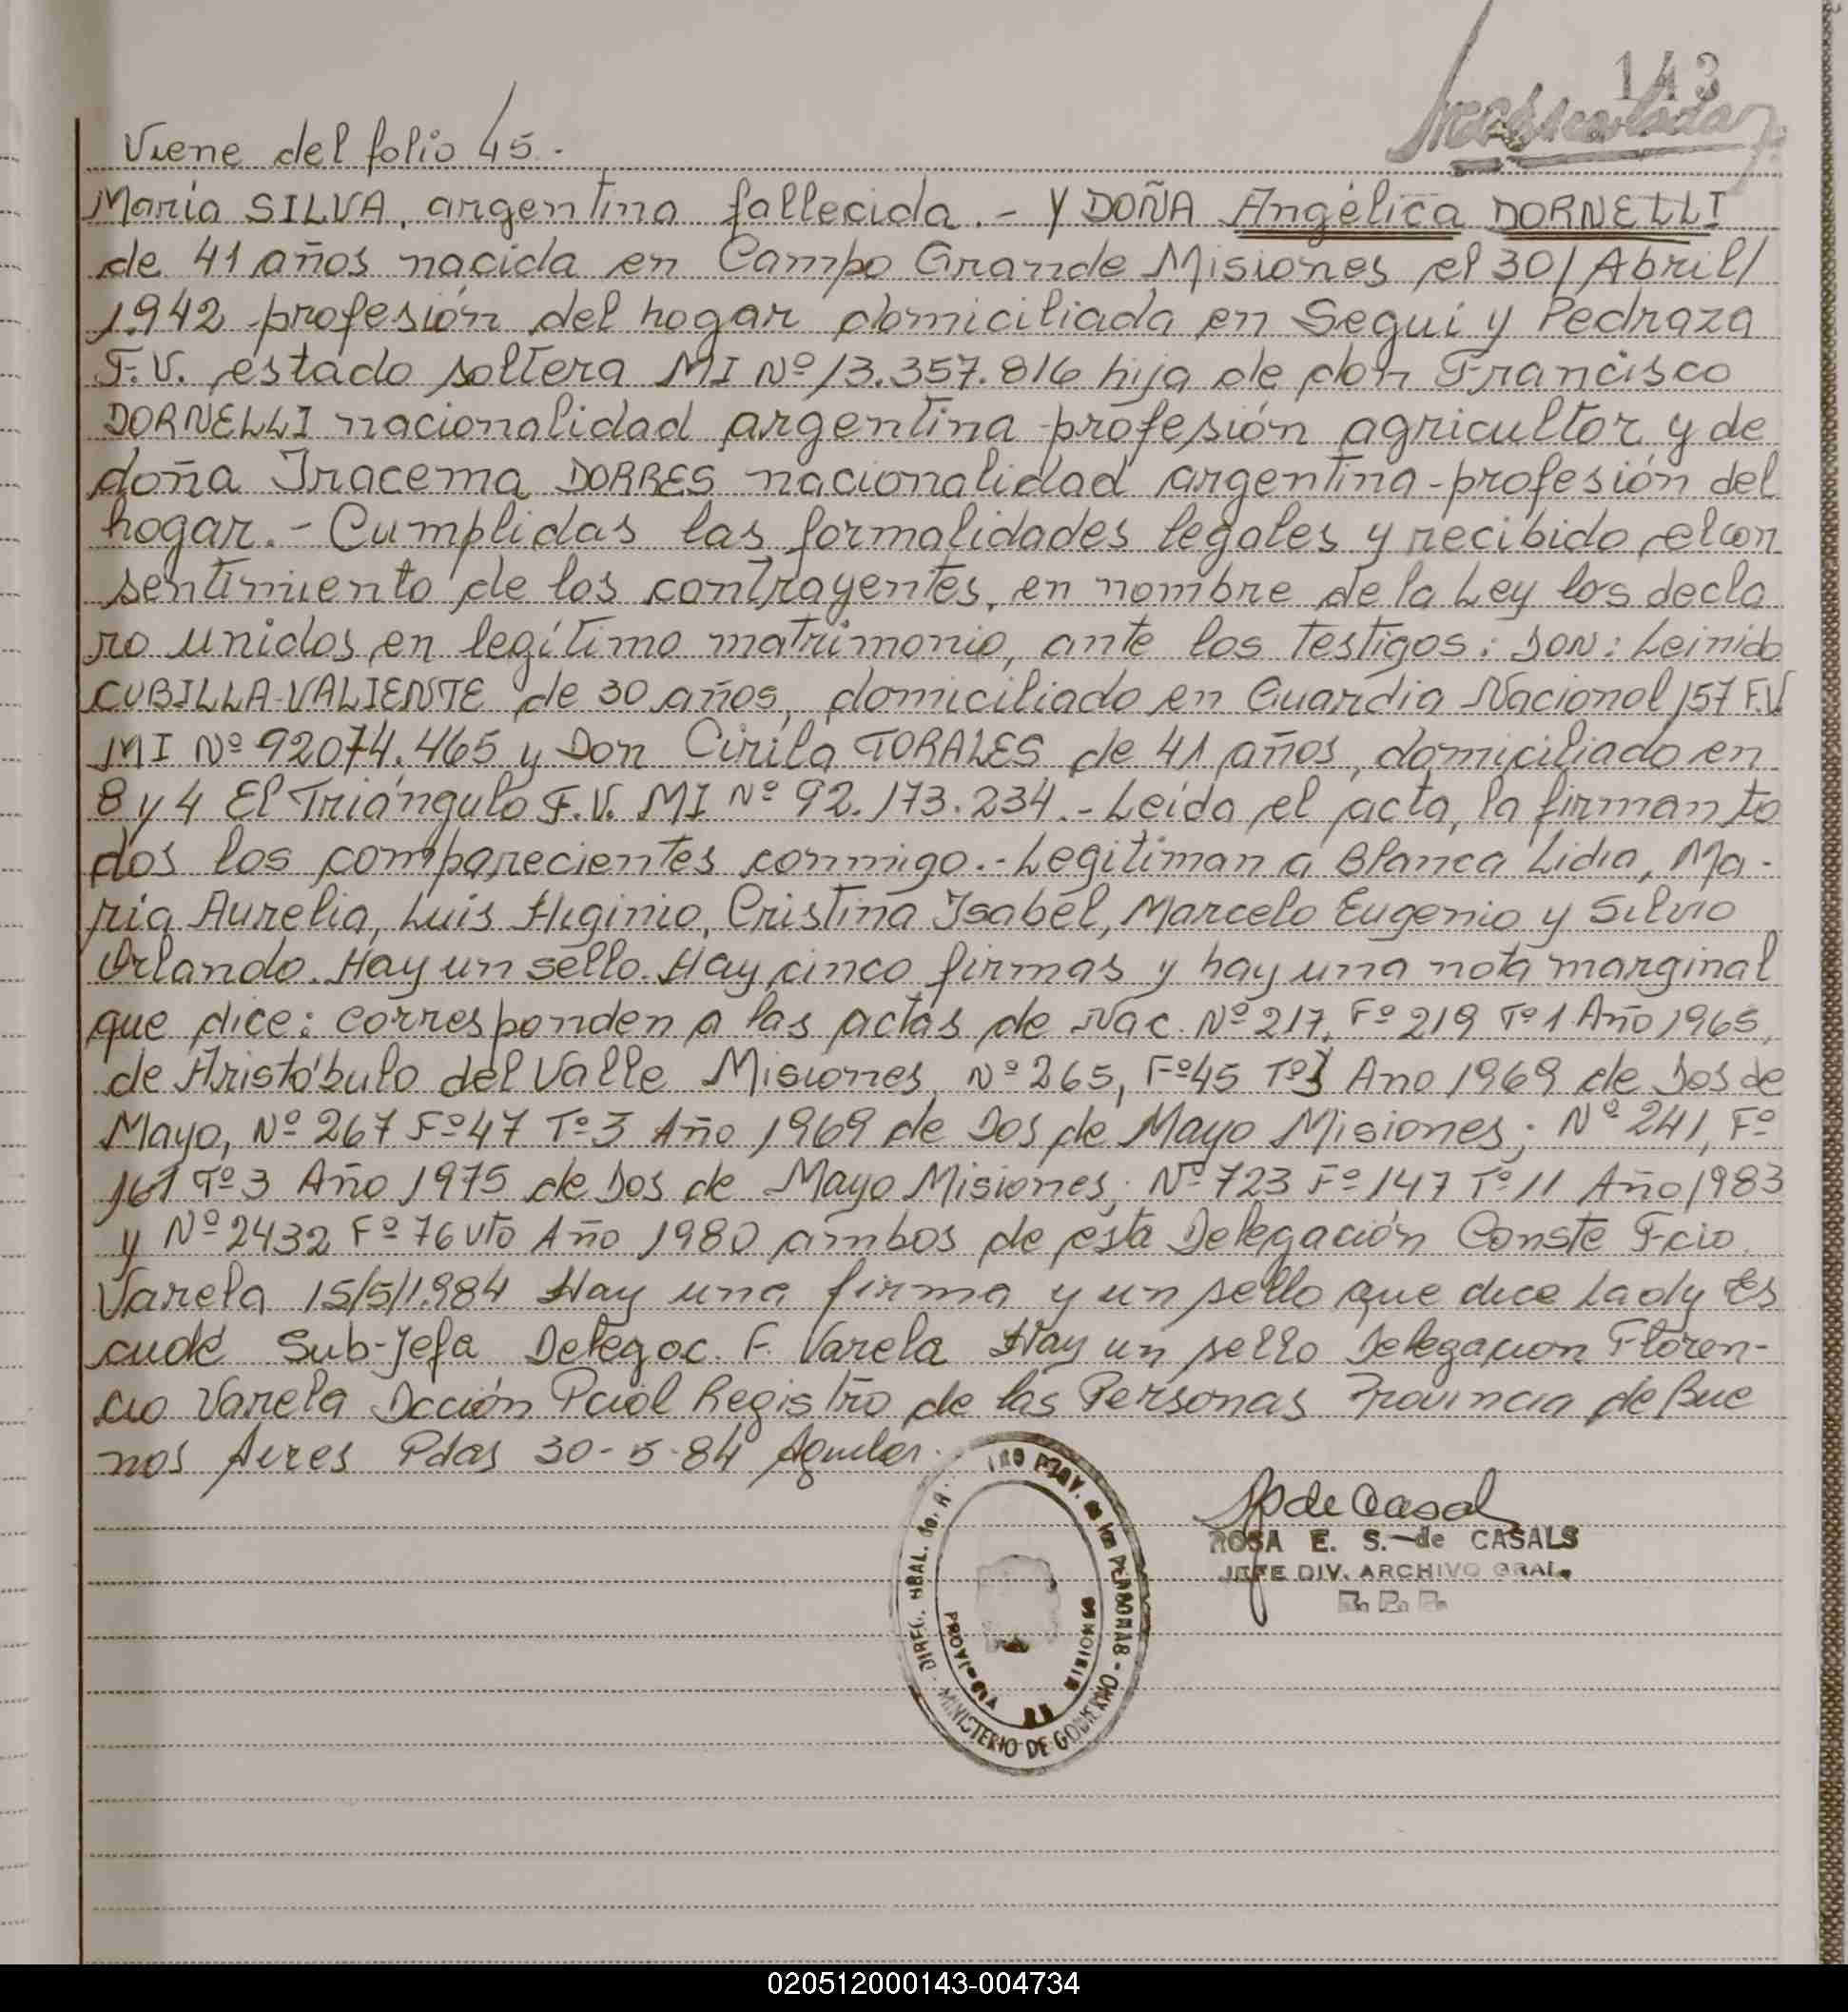 143
Viene del folio 45.-
María SILVA, argentina fallecida.- Y DOÑA Angélica DORNELLI
de 41 años nacida en Campo Grande Misiones el 30/Abril/
1.942 profesión del hogar domiciliada en Seguí y Pedraza
F.V. estado soltera MI Nº 13.357.816 hija de don Francisco
DORNELLI nacionalidad argentina profesión agricultor y de
doña Iracema DORRES nacionalidad argentina-profesión del
hogar.- Cumplidas las formalidades legales y recibido el con
sentimiento de los contrayentes, en nombre de la Ley los decla
ro unidos en legítimo matrimonio, ante los testigos: DON: Leinido
CUBILLA-VALIENTE de 30 años, domiciliado en Guardia Nacional 157 F.V.
MI Nº 92074.465 y Don Cirilo TORALES de 41 años, domiciliado en
8 y 4 El Triángulo F.V. MI Nº 92.173.234.- Leída el acta, la firman to
dos los comparecientes conmigo.- Legitiman a Blanca Lidia, Ma-
ria Aurelia, Luis Higinio, Cristina Isabel, Marcelo Eugenio y Silvio
Orlando. Hay un sello. Hay cinco firmas y hay una nota marginal
que dice: corresponden a las actas de Nac. Nº 217, Fº 219 Tº 1 Año 1965,
de Aristóbulo del Valle Misiones, Nº 265, Fº 45 Tº 3 Ano 1969 de Dos de
Mayo, Nº 267 Fº 47 Tº 3 Año 1969 de Dos de Mayo Misiones; Nº 241, Fº
161 Tº 3 Año 1975 de Dos de Mayo Misiones; Nº 723 Fº 147 Tº 11 Año 1983
y Nº 2432 Fº 76 vto Año 1980 ambos de esta Delegación Conste F-cio.
Varela 15/5/1.984 Hay una firma y un sello que dice Lady Es
cudé Sub-Jefa Delegac. F. Varela Hay un sello Delegacion Floren-
cio Varela Dcción Pcial Registro de las Personas Provincia de Bue
nos Aires Pdas 30-5-84 Aguilar.
de Casal
ROSA E. S.-de CASALS
JEFE DIV. ARCHIVO GRAL.
R. P. P.
DIREC. GRAL. PROV. de las PERSONAS - MINISTERIO DE GOBIERNO
PROVINCIA DE MISIONES
020512000143-004734